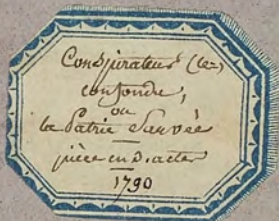 Conspirateurs (les)
confondus,
ou
la Patrie Sauvée
pièce en 5. actes
1790